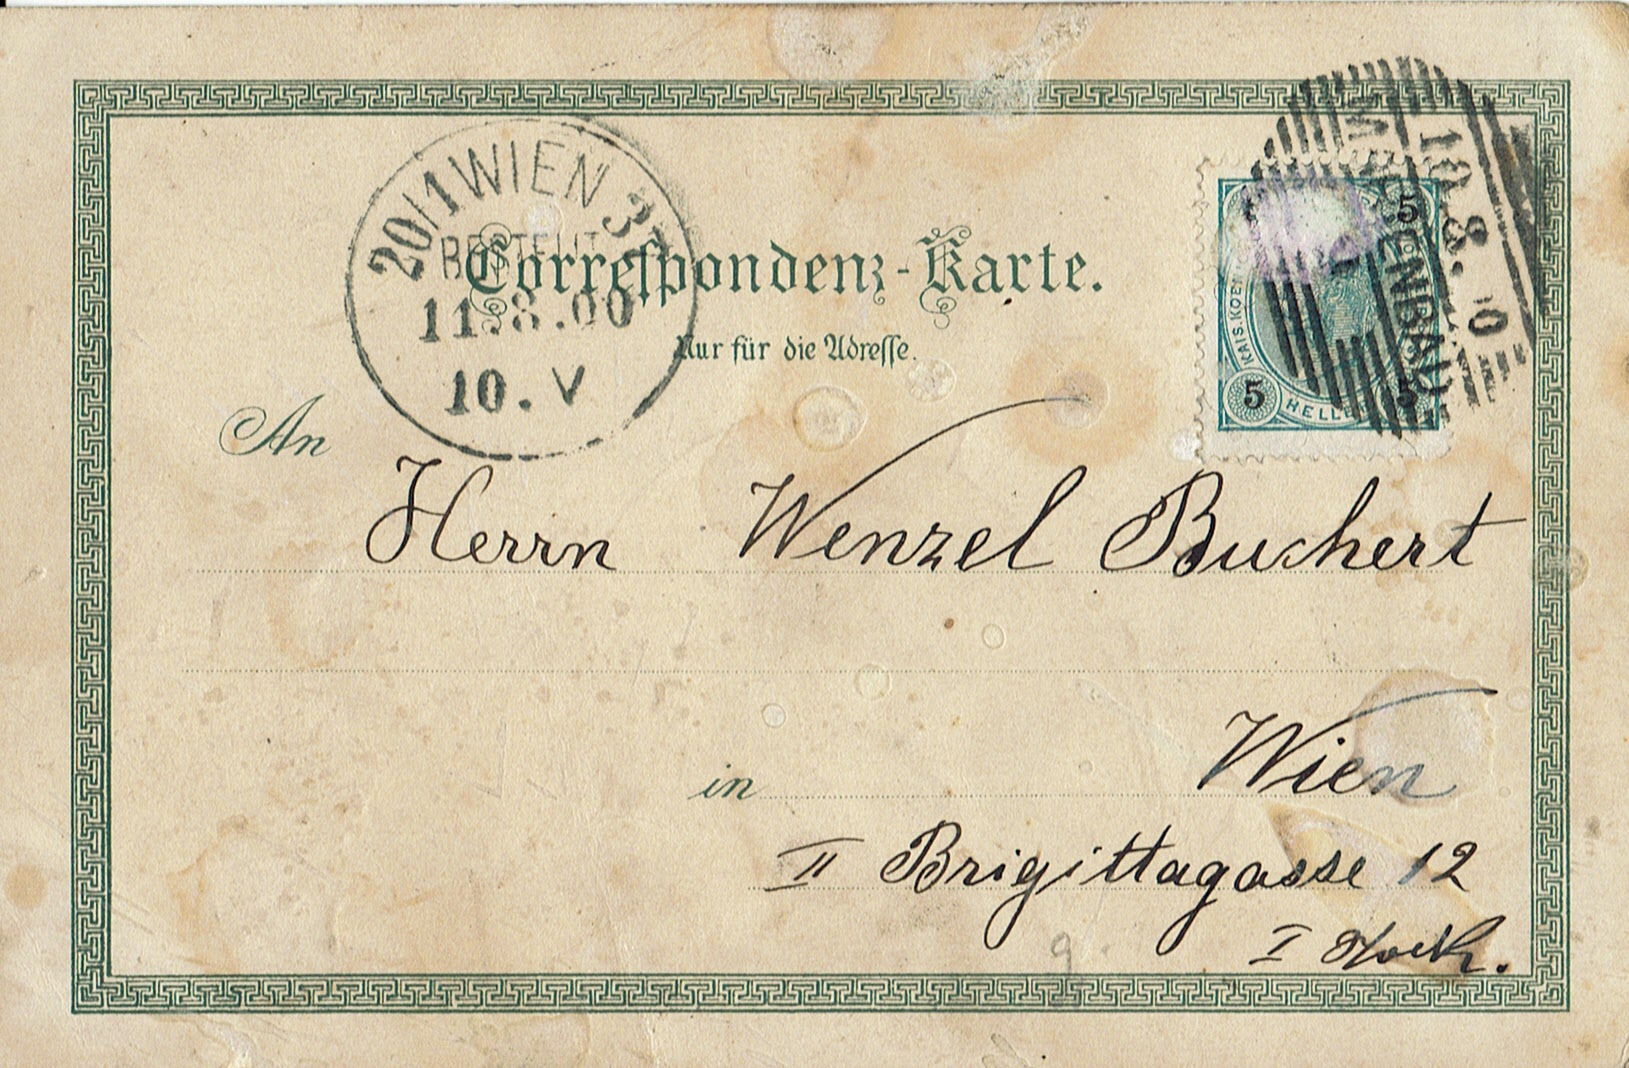 20/1 WIEN
BESTELLT
11.8.00
10. V
10.8.
Correspondenz-Karte.
Nur für die Adresse.
KAIS. KOEN
5
5
5
5 HELLE
An
Herrn Wenzel Buchert
in Wien
II Brigittagasse 12
I Stock.